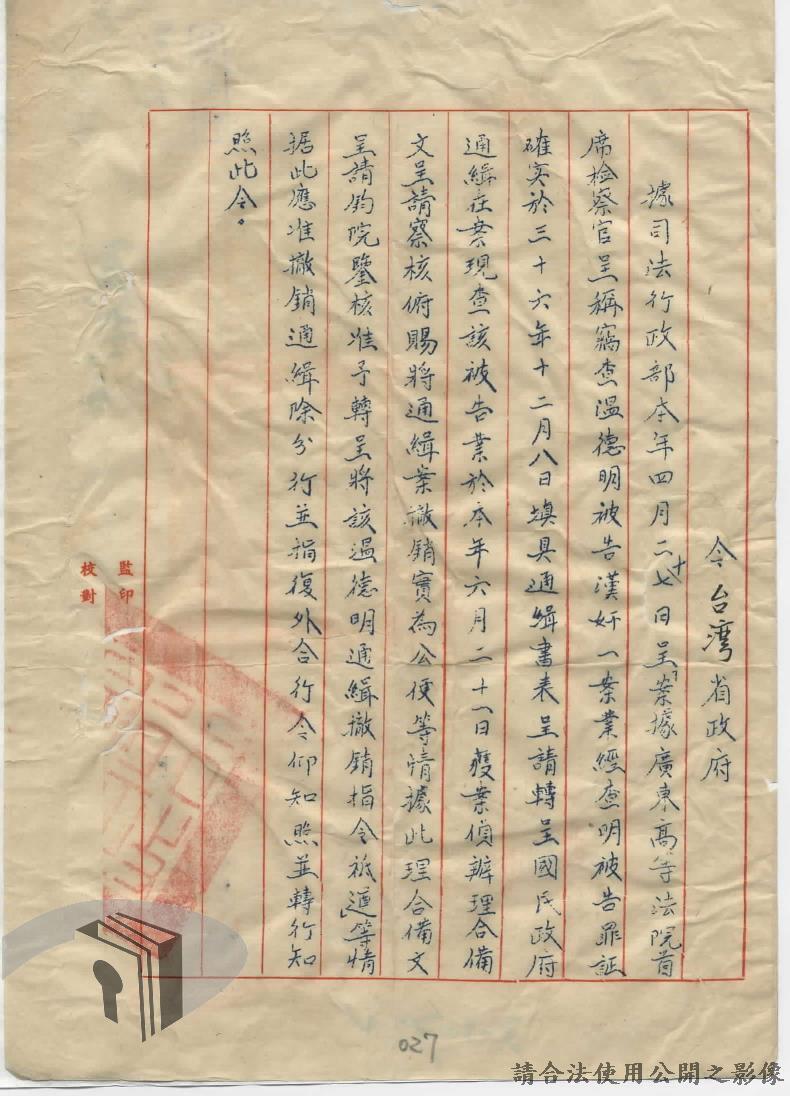 令台灣省政府
據司法行政部本年四月二十七日呈「案據廣東高等法院首
席檢察官呈稱竊查溫德明被告漢奸一案業經查明被告罪証
確实於三十六年十二月八日填具通緝書表呈請轉呈國民政府
通緝在案現查該被告業於本年六月二十一日獲案偵辦理合備
文呈請察核俯賜將通緝案撤銷實為公便等情據此理合備文
呈請鈞院鑒核准予轉呈將該溫德明通緝撤銷指令祇遵」等情
据此應准撤銷通緝除分行並指復外合行令仰知照並轉行知
照此令。
監印
校對
027
請合法使用公開之影像